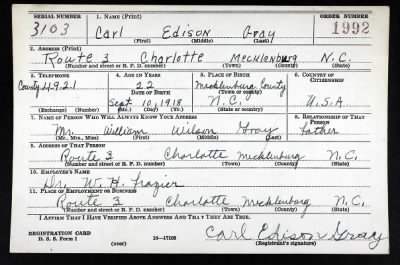 SERIAL NUMBER 1. NAME (Print) ORDER NUMBER
3103 Carl Edison Gray 1992
(First) (Middle) (Last)
2. ADDRESS (Print)
Route 3 Charlotte Mecklenburg N.C.
(Number and street or R. F. D. number) (Town) (County) (State)
3. TELEPHONE 4. AGE IN YEARS 5. PLACE OF BIRTH 6. COUNTRY OF CITIZENSHIP
County 4921 22 Mecklenburg County
DATE OF BIRTH (Town or county)
Sept. 10, 1918 N.C. U.S.A
(Exchange) (Number) (Mo.) (Day) (Yr.) (State or country)
7. NAME OF PERSON WHO WILL ALWAYS KNOW YOUR ADDRESS 8. RELATIONSHIP OF THAT PERSON
Mr. William Wilson Gray Father
(Mr., Mrs., Miss) (First) (Middle) (Last)
9. ADDRESS OF THAT PERSON
Route 3 Charlotte Mecklenburg N.C.
(Number and street or R. F. D. number) (Town) (County) (State)
10. EMPLOYER'S NAME
Dr. W. H. Frazier
11. PLACE OF EMPLOYMENT OR BUSINESS
Route 3 Charlotte Mecklenburg N.C.
(Number and street or R. F. D. number) (Town) (County) (State)
I AFFIRM THAT I HAVE VERIFIED ABOVE ANSWERS AND THAT THEY ARE TRUE.
REGISTRATION CARD
D. S. S. Form 1 (over) 16—17105 Carl Edison Gray
(Registrant's signature)